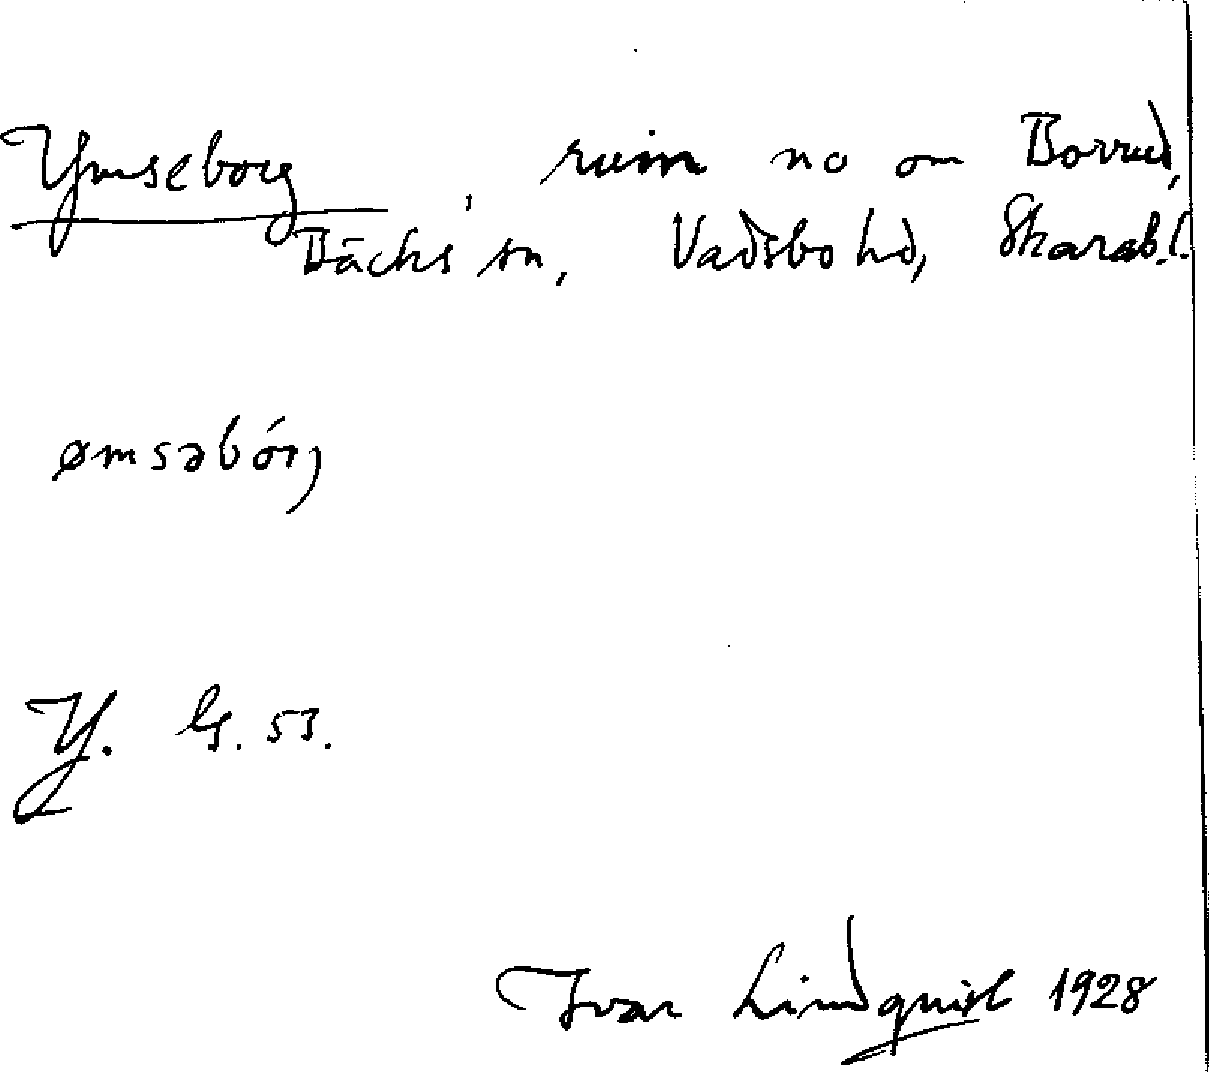 Ymseborg, ruin no om Borrud,
Bäcks sn, Vadsbo hd, Skarab.l.
ømsəbórj
Y. G. 53.
Ivar Lindquist 1928